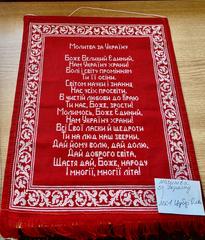 Молитва за Україну
Боже Великий Єдиний,
Нам Україну храни!
Волі і світу промінням
Ти її осіни.
Світом науки і знання
Нас усіх просвіти,
В чистій любови до краю
Ти нас, Боже, зрости!
Молимось, Боже Єдиний,
Нам Україну храни!
Всі Свої ласки й щедроти
Ти на люд наш зверни.
Дай йому волю, дай долю,
Дай доброго світа,
Щастя дай, Боже, народу
І многії, многії літа!
Молитва
за Україну